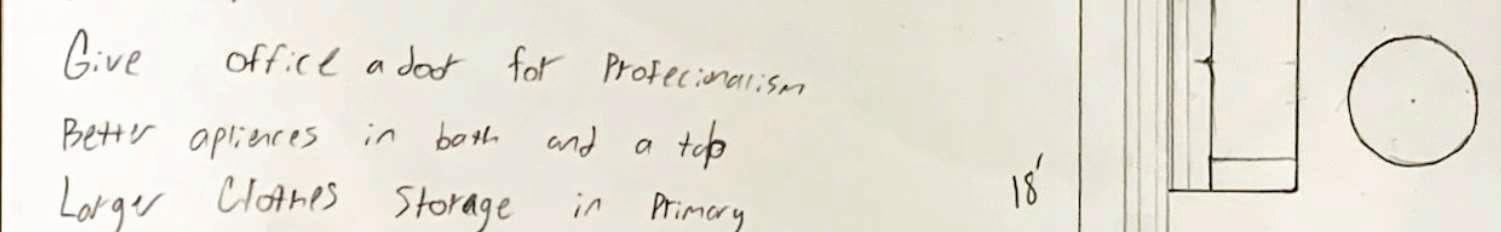 Give office a door for Profecionalism
Better apliences in bath and a tub
Larger Clothes Storage in Primary
18'